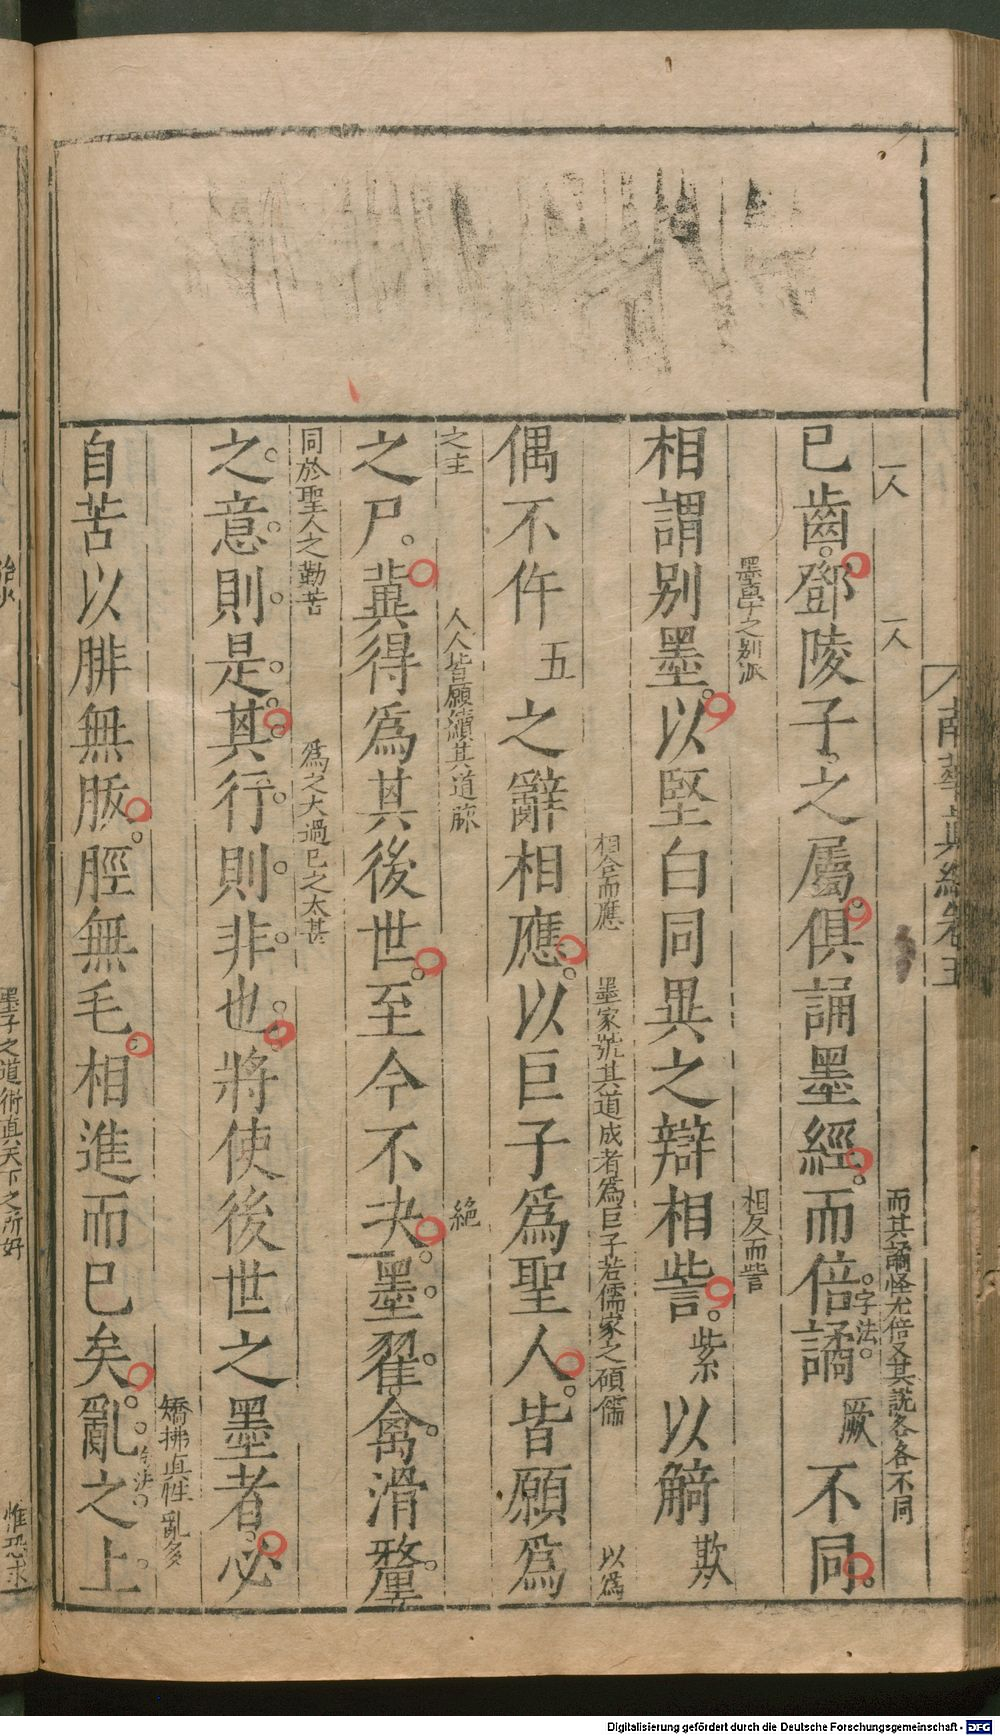 南華眞經卷五
一人
一人
而其譎怪尤倍又其說各各不同
已齒鄧陵子之屬俱誦墨經而倍譎厥不同
字法
墨學之別派
相反而訾
相謂別墨以堅白同異之辯相訾紫以觭欺
相合而應
墨家號其道成者爲巨子若儒家之碩儒
以爲
偶不仵五之辭相應以巨子爲聖人皆願爲
之主
人人皆願續其道脉
絕
之尸冀得爲其後世至今不决墨翟禽滑釐
同於聖人之勤苦
爲之大過已之太甚
之意則是其行則非也將使後世之墨者必
矯拂真性亂多
自苦以腓無胈脛無毛相進而已矣亂之上
墨子之道術真天下之所好
惟恐求
治水
Digitalisierung gefördert durch die Deutsche Forschungsgemeinschaft - DFG